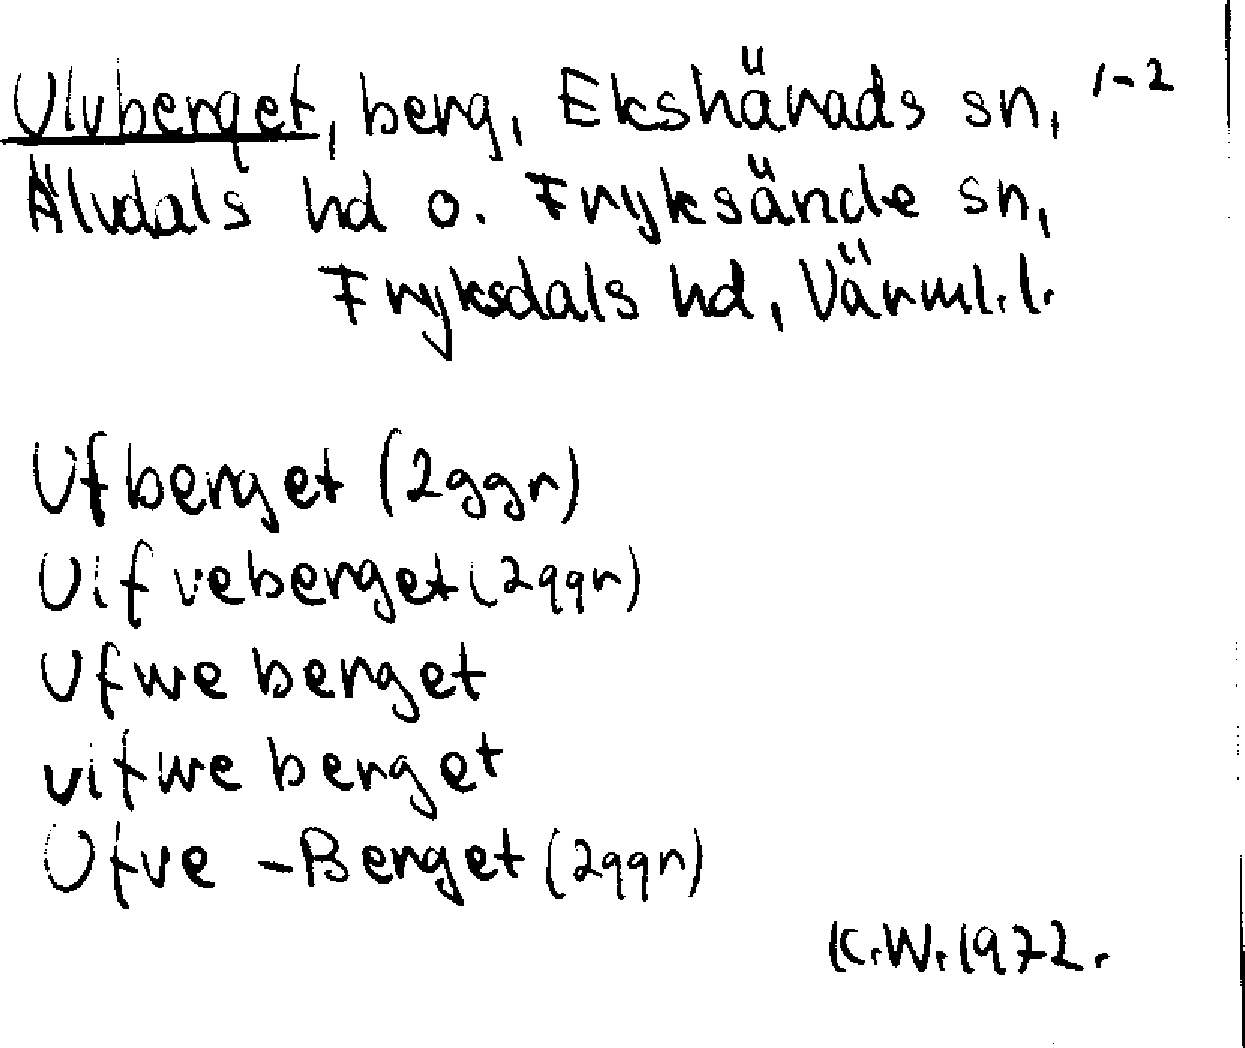 Ulvberget, berg, Ekshärads sn, 1-2
Älvdals hd o. Fryksände sn,
Fryksdals hd, Värml.l.
Ufberget (2ggr)
Ulfveberget (2ggr)
Ufwe berget
ulfwe berget
Ufve-Berget (2ggr)
K.W. 1972.